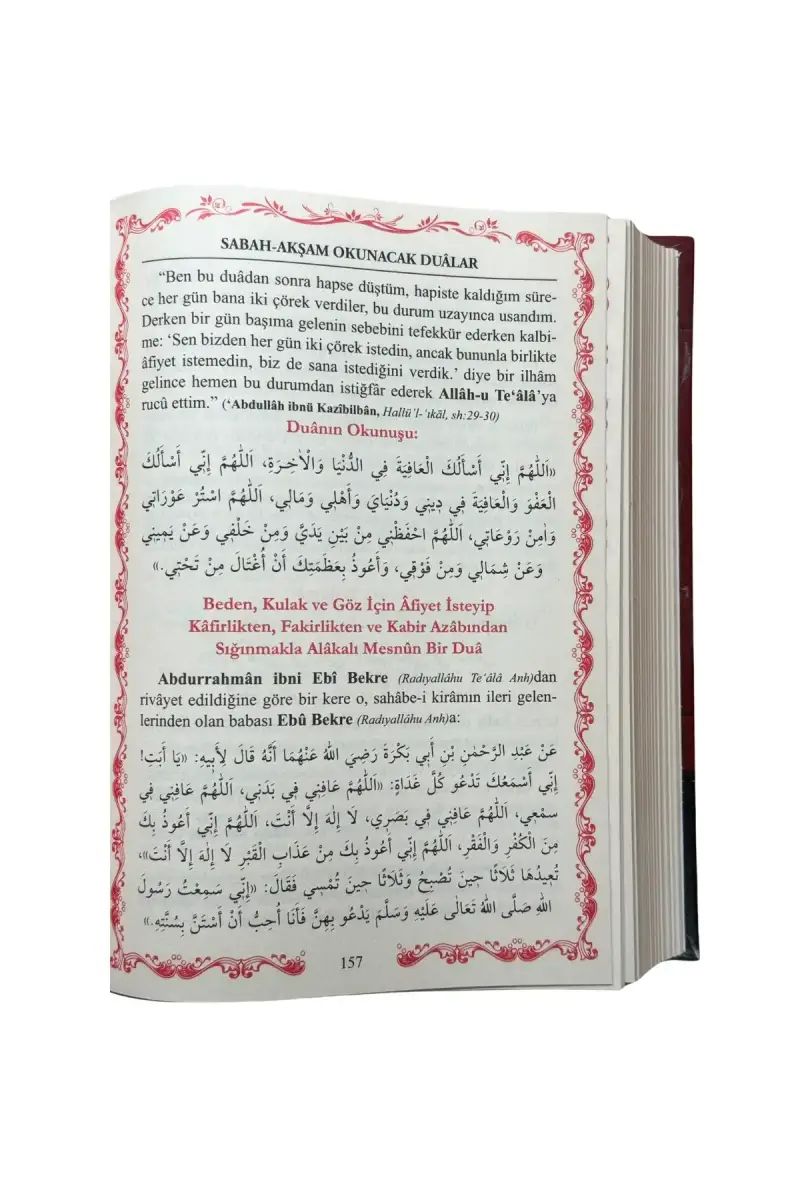 SABAH-AKŞAM OKUNACAK DUÂLAR
“Ben bu duâdan sonra hapse düştüm, hapiste kaldığım süre-
ce her gün bana iki çörek verdiler, bu durum uzayınca usandım.
Derken bir gün başıma gelenin sebebini tefekkür ederken kalbi-
me: ‘Sen bizden her gün iki çörek istedin, ancak bununla birlikte
âfiyet istemedin, biz de sana istediğini verdik.’ diye bir ilhâm
gelince hemen bu durumdan istiğfâr ederek Allâh-u Te‘âlâ’ya
rucû ettim.” (‘Abdullâh ibnü Kazîbilbân, Hallü’l-‘ıkâl, sh:29-30)
Duânın Okunuşu:
«اَللّٰهُمَّ إِنِّي أَسْأَلُكَ الْعَافِيَةَ فِي الدُّنْيَا وَالْاٰخِرَةِ، اَللّٰهُمَّ إِنِّي أَسْأَلُكَ
الْعَفْوَ وَالْعَافِيَةَ فِي دِينِي وَدُنْيَايَ وَأَهْلِي وَمَالِي، اَللّٰهُمَّ اسْتُرْ عَوْرَاتِي
وَاٰمِنْ رَوْعَاتِي، اَللّٰهُمَّ احْفَظْنِي مِنْ بَيْنِ يَدَيَّ وَمِنْ خَلْفِي وَعَنْ يَمِينِي
وَعَنْ شِمَالِي وَمِنْ فَوْقِي، وَأَعُوذُ بِعَظَمَتِكَ أَنْ أُغْتَالَ مِنْ تَحْتِي.»
Beden, Kulak ve Göz İçin Âfiyet İsteyip
Kâfirlikten, Fakirlikten ve Kabir Azâbından
Sığınmakla Alâkalı Mesnûn Bir Duâ
Abdurrahmân ibni Ebî Bekre (Radıyallâhu Te‘âlâ Anh)dan
rivâyet edildiğine göre bir kere o, sahâbe-i kirâmın ileri gelen-
lerinden olan babası Ebû Bekre (Radıyallâhu Anh)a:
عَنْ عَبْدِ الرَّحْمٰنِ بْنِ أَبِي بَكْرَةَ رَضِيَ اللهُ عَنْهُمَا أَنَّهُ قَالَ لِأَبِيهِ: «يَا أَبَتِ!
إِنِّي أَسْمَعُكَ تَدْعُو كُلَّ غَدَاةٍ: «اَللّٰهُمَّ عَافِنِي فِي بَدَنِي، اَللّٰهُمَّ عَافِنِي فِي
سَمْعِي، اَللّٰهُمَّ عَافِنِي فِي بَصَرِي، لَا إِلٰهَ إِلَّا أَنْتَ، اَللّٰهُمَّ إِنِّي أَعُوذُ بِكَ
مِنَ الْكُفْرِ وَالْفَقْرِ، اَللّٰهُمَّ إِنِّي أَعُوذُ بِكَ مِنْ عَذَابِ الْقَبْرِ لَا إِلٰهَ إِلَّا أَنْتَ»،
تُعِيدُهَا ثَلَاثًا حِينَ تُصْبِحُ وَثَلَاثًا حِينَ تُمْسِي فَقَالَ: «إِنِّي سَمِعْتُ رَسُولَ
اللهِ صَلَّى اللهُ تَعَالٰى عَلَيْهِ وَسَلَّمَ يَدْعُو بِهِنَّ فَأَنَا أُحِبُّ أَنْ أَسْتَنَّ بِسُنَّتِهِ.»
157